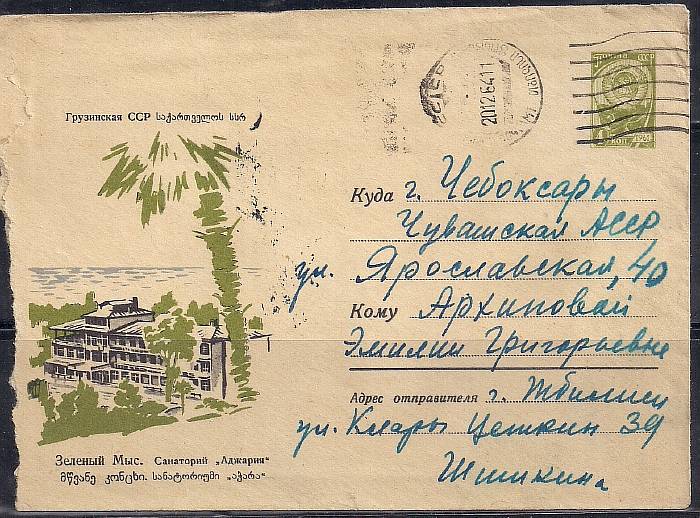 Грузинская ССР საქართველოს სსრ
20 12 64 11
ПОЧТА СССР
КОП 1961
Куда г. Чебоксары
Чувашская АССР
ул. Ярославская, 40
Кому Архиповой
Эмилии Григорьевне
Адрес отправителя г. Тбилиси
ул. Клары Цеткин 39
Шишкина
Зеленый Мыс. Санаторий „Аджария“
მწვანე კონცხი. სანატორიუმი „აჭარა“